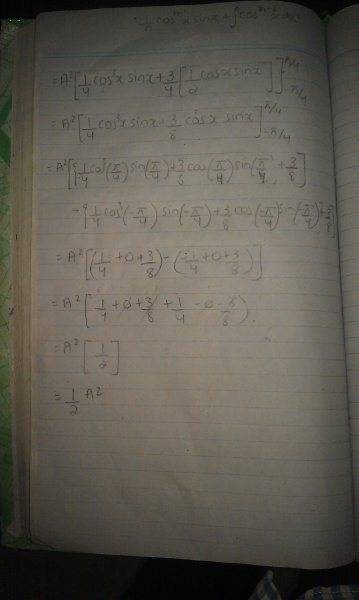 1/n cos^{n-1} x sin x + ∫ cos^{n-2}
= A² [ 1/4 cos³x sin x + 3/4 [ 1/2 cos x sin x ] ]_{-π/4}^{π/4}
= A² [ 1/4 cos³x sin x + 3/8 cos x sin x ]_{-π/4}^{π/4}
= A² [ { 1/4 cos³(π/4) sin(π/4) + 3/8 cos(π/4) sin(π/4) + 3/8 ]
- { 1/4 cos³(-π/4) sin(-π/4) + 3/8 cos(-π/4) (-π/4) + 3/8 ]
= A² [ (1/4 + 0 + 3/8) - (-1/4 + 0 + 3/8) ]
= A² [ 1/4 + 0 + 3/8 + 1/4 - 0 - 3/8 )
= A² [ 1/2 ]
= 1/2 A²